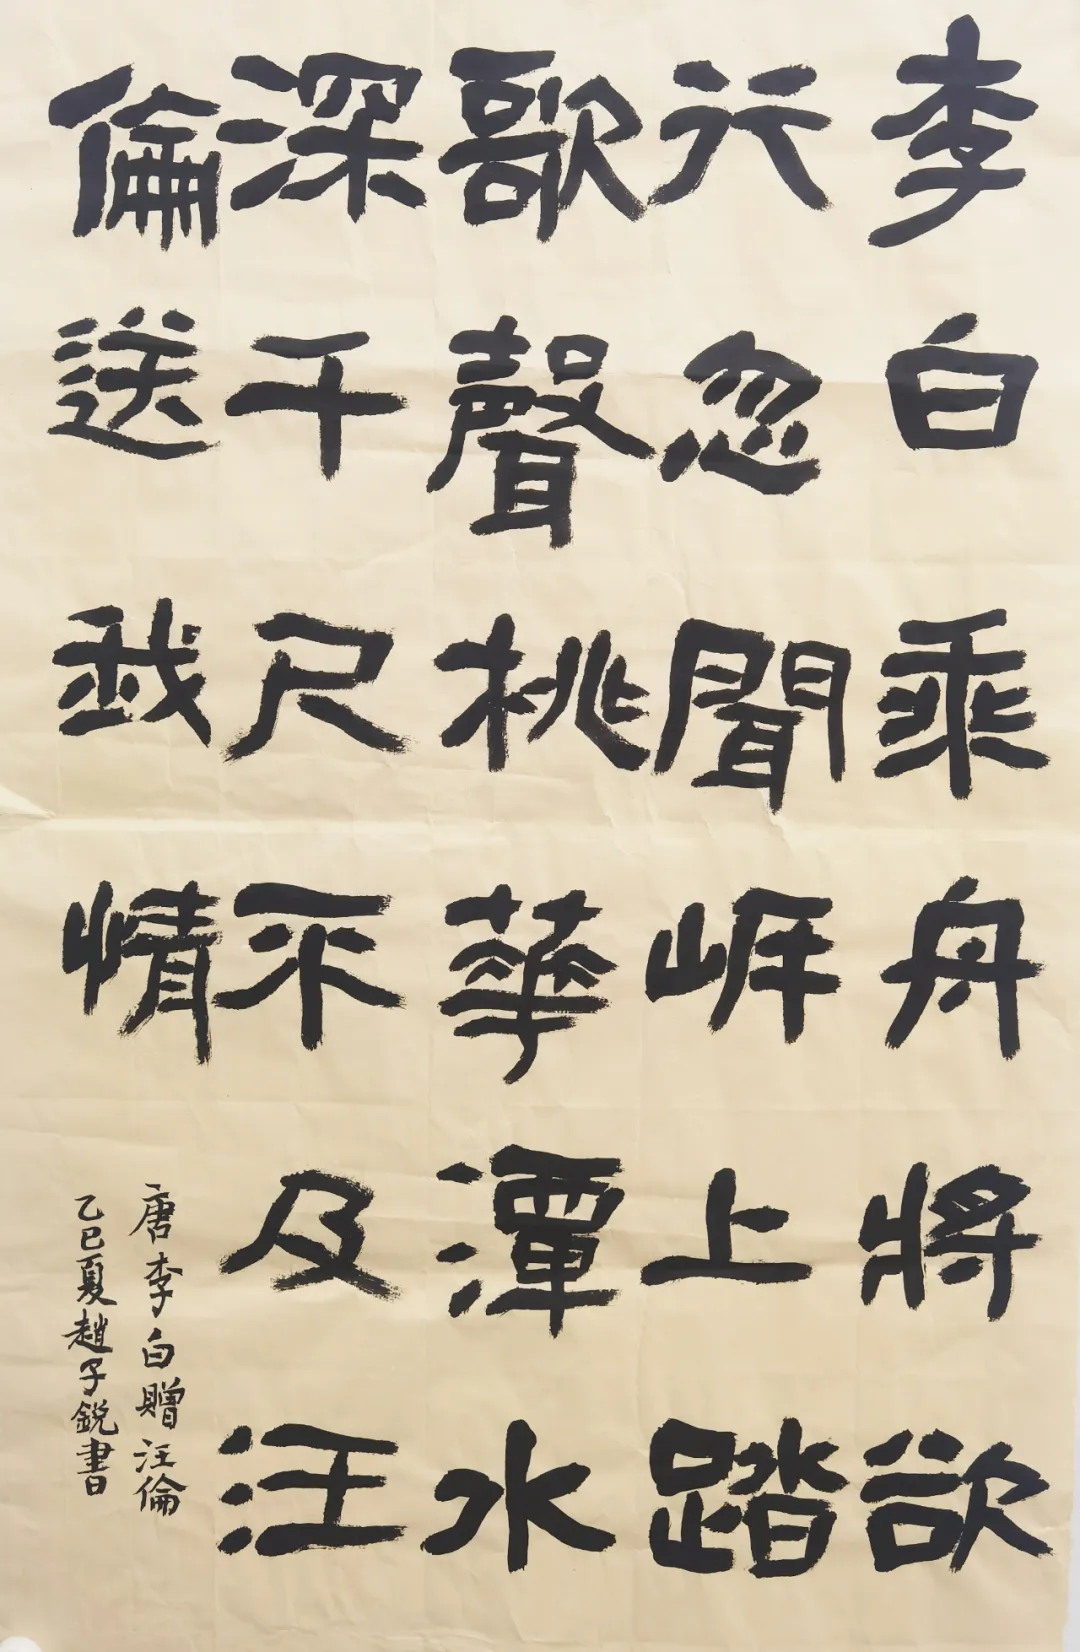 李白乘舟將欲
行忽聞岸上踏
歌聲桃華潭水
深千尺不及汪
倫送我情
唐李白贈汪倫
乙巳夏趙子銳書